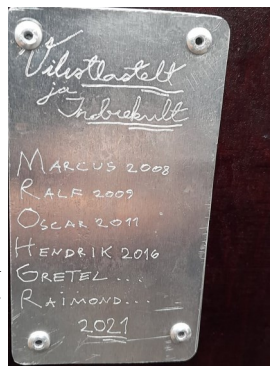 Vilistlastelt
ja
Indrekult
MARCUS 2008
RALF 2009
OSCAR 2011
HENDRIK 2016
GRETEL...
RAIMOND...
2021